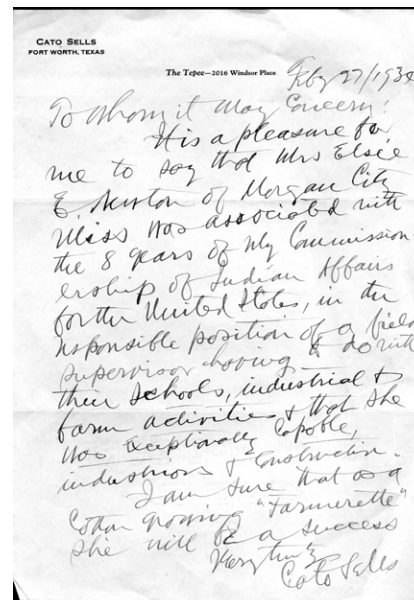 CATO SELLS
FORT WORTH, TEXAS
The Tepee—2016 Windsor Place
Feby 27/1934
To Whom it May Concern:
It is a pleasure for
me to say that Mrs Elsie
E. Newton of Morgan City
Miss was associated with
the 8 years of my Commission
ership of Indian Affairs
for the United States, in the
responsible position of a field
supervisor having to do with
their schools, industrial &
farm activities & that she
was exceptionally capable,
industrious & constructive.
I am sure that as a
Cotton growing "Farmerette"
she will be a success
Very truly
Cato Sells